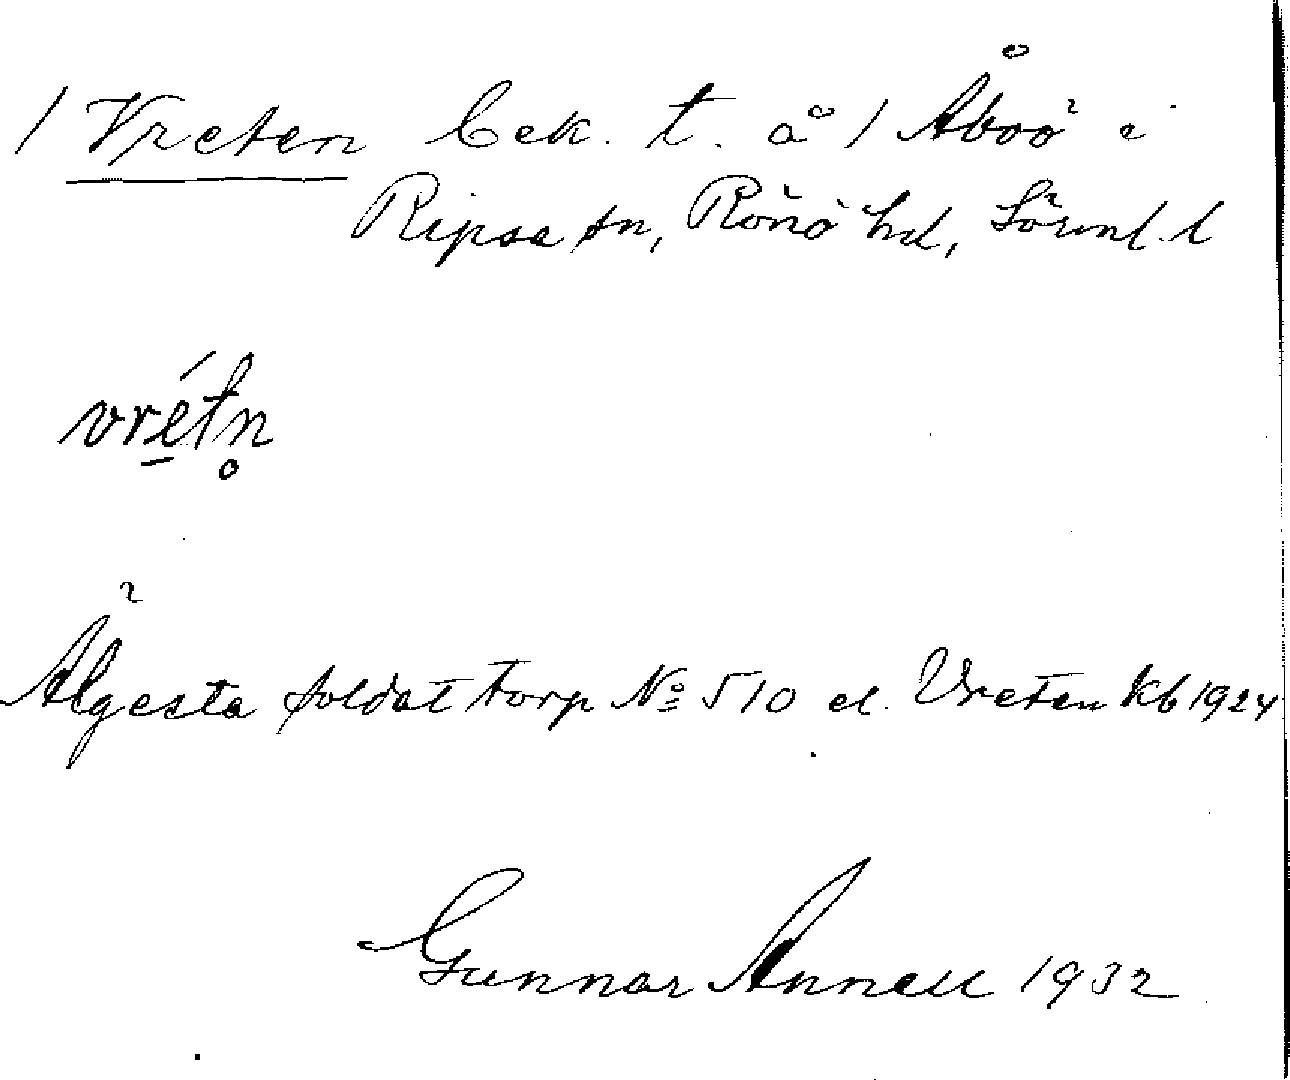 / Vreten bek. t. å / Åboö i
Ripsa sn, Rönö hd, Sörml. l
vrétn̥
Älgesta soldattorp No 510 el. Vreten Kb 1924
Gunnar Annell 1932